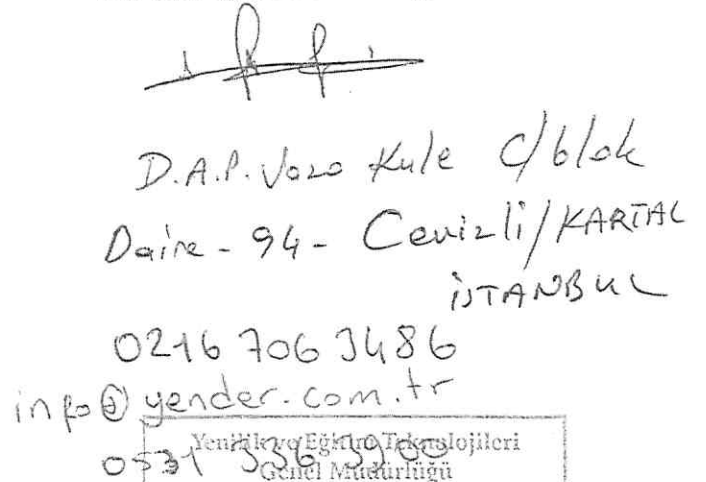 D.A.P. Vazo Kule C/blok
Daire - 94 - Cevizli/KARTAL
İSTANBUL
0216 706 3486
info@yender.com.tr
Yenilik ve Eğitim Teknolojileri
0531 336 3900
Genel Müdürlüğü